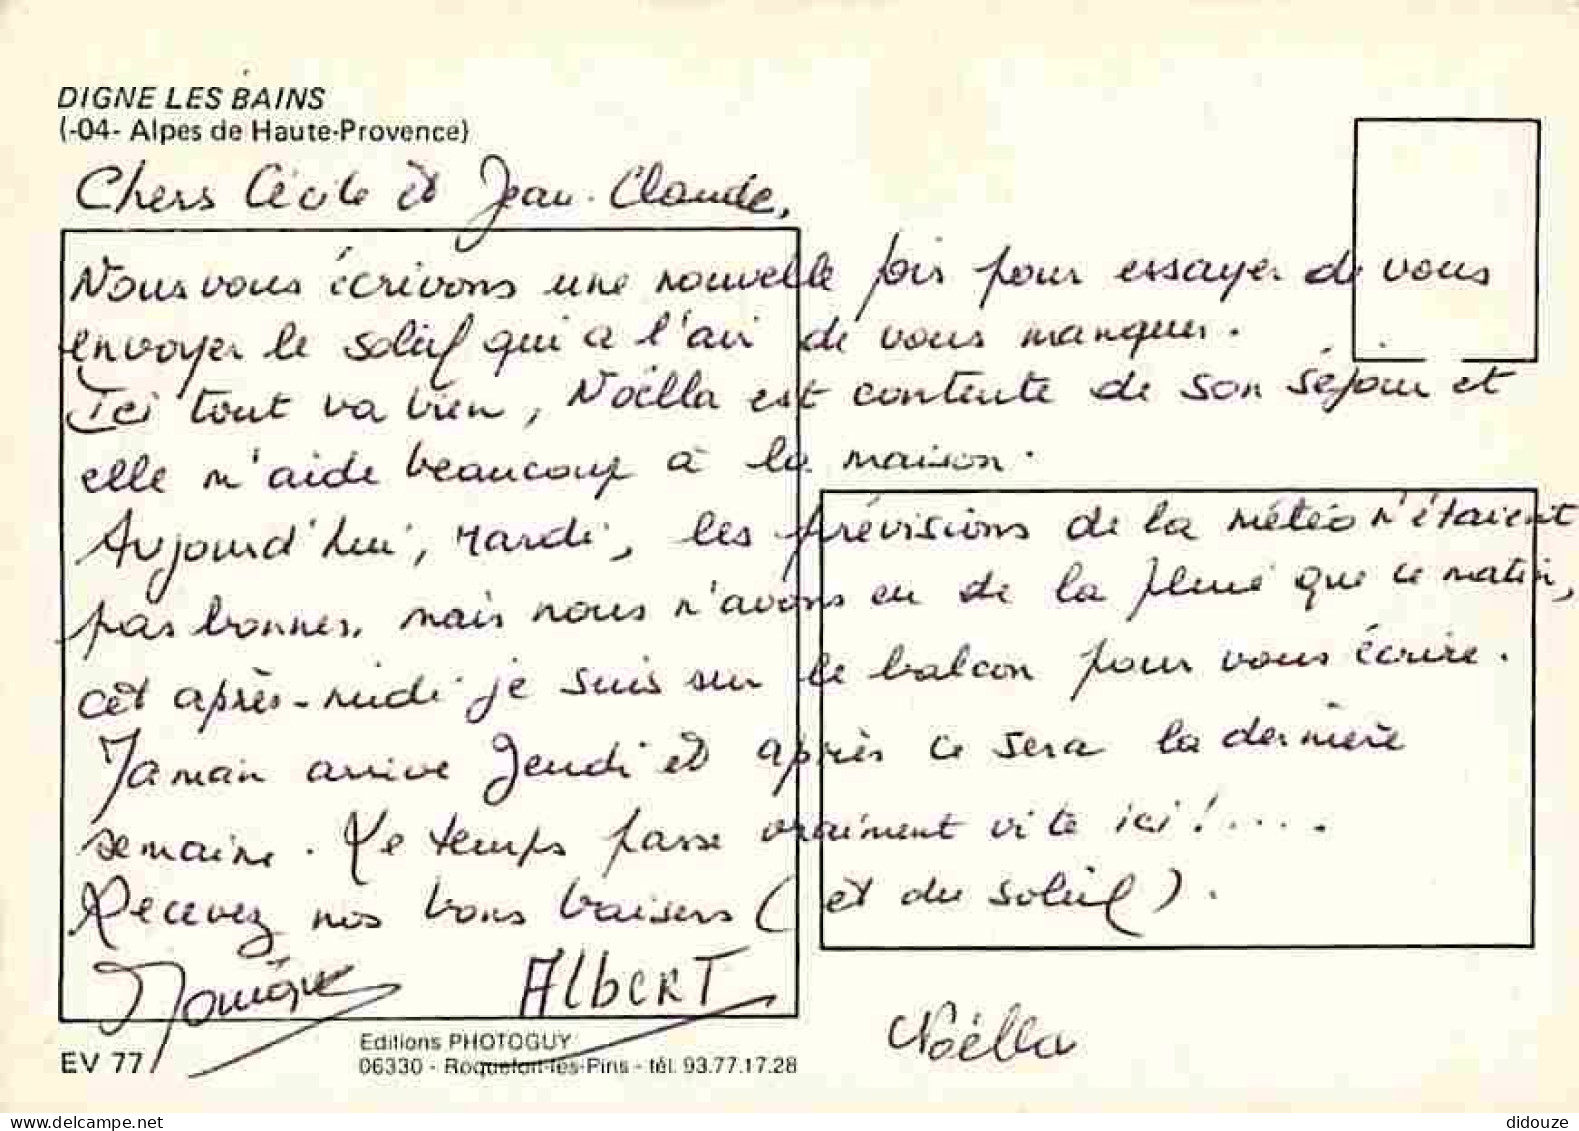 DIGNE LES BAINS
(-04- Alpes de Haute-Provence)
Chers Cécile et Jean-Claude,
Nous vous écrivons une nouvelle fois pour essayer de vous
envoyer le soleil qui a l'air de vous manquer.
Ici tout va bien, Noëlla est contente de son séjour et
elle m'aide beaucoup à la maison.
Aujourd'hui, Mardi, les prévisions de la météo n'étaient
pas bonnes, mais nous n'avons eu de la pluie que ce matin,
cet après-midi je suis sur le balcon pour vous écrire.
Maman arrive Jeudi et après ce sera la dernière
semaine. Le temps passe vraiment vite ici !.....
Recevez nos bons baisers (et du soleil).
Monique ALbERT
Noëlla
EV 77
Editions PHOTOGUY
06330 - Roquefort-les-Pins - tél. 93.77.17.28
didouze